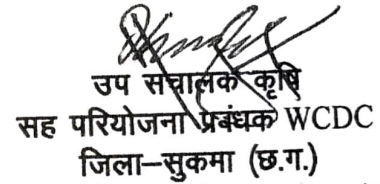 उप संचालक कृषि
सह परियोजना प्रबंधक WCDC
जिला–सुकमा (छ.ग.)